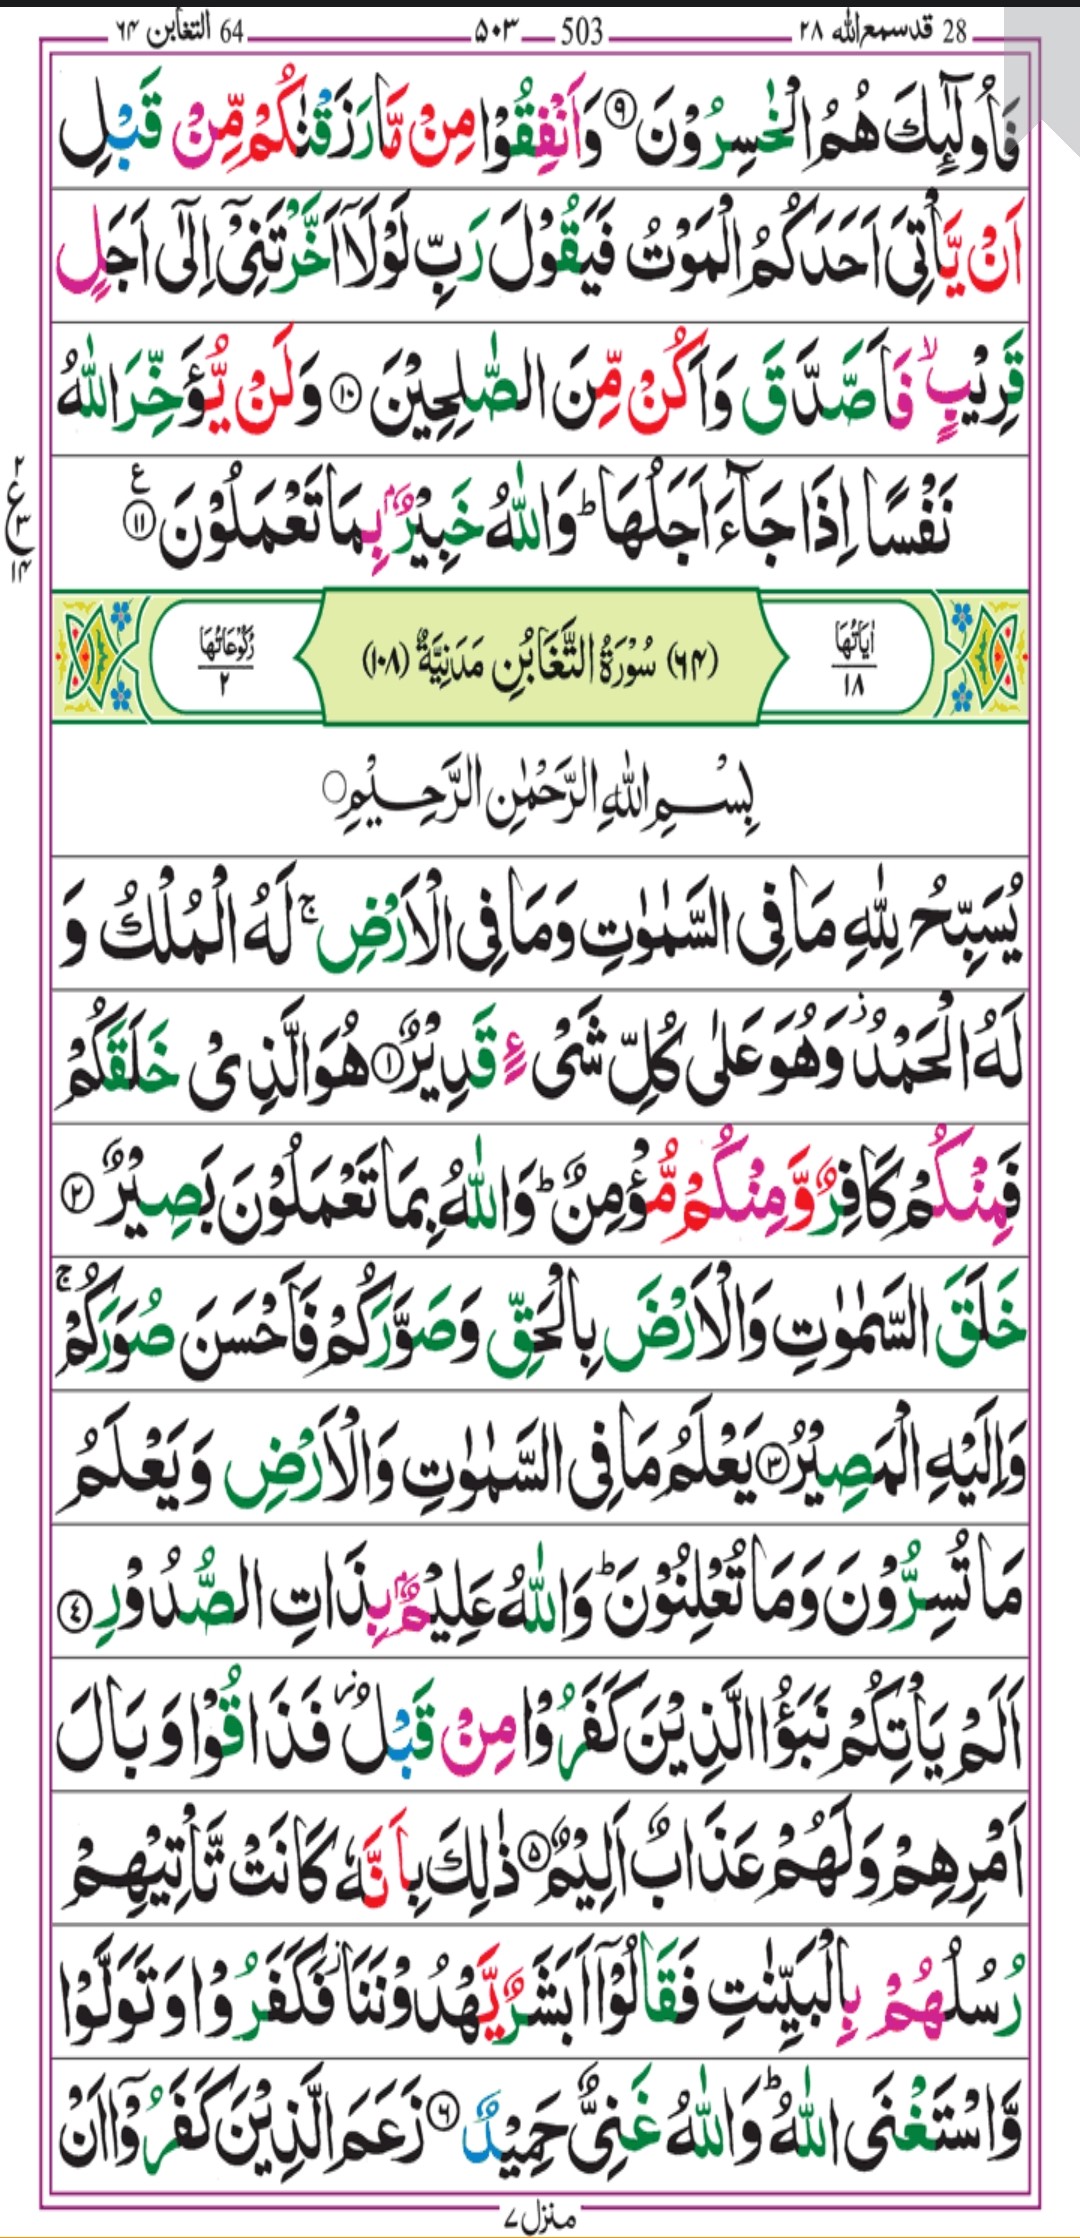 28 قدسمع الله ٢٨ 503 ۵۰۳ 64 التغابن ٦۴
فَاُولٰٓئِكَ هُمُ الْخٰسِرُوْنَ ۹ وَاَنْفِقُوْا مِنْ مَّا رَزَقْنٰكُمْ مِّنْ قَبْلِ
اَنْ يَّاْتِیَ اَحَدَكُمُ الْمَوْتُ فَيَقُوْلَ رَبِّ لَوْلَاۤ اَخَّرْتَنِیْۤ اِلٰۤی اَجَلٍ
قَرِيْبٍ ۙ فَاَصَّدَّقَ وَاَكُنْ مِّنَ الصّٰلِحِيْنَ ۱۰ وَلَنْ يُّؤَخِّرَ اللّٰهُ
نَفْسًا اِذَا جَآءَ اَجَلُهَا ؕ وَاللّٰهُ خَبِيْرٌۢ بِمَا تَعْمَلُوْنَ ۱۱ ع
٢
ع
٣
١۴
اٰيَاتُهَا ١٨ (٦۴) سُوْرَةُ التَّغَابُنِ مَدَنِيَّةٌ (١٠٨) رُكُوْعَاتُهَا ٢
بِسْمِ اللّٰهِ الرَّحْمٰنِ الرَّحِيْمِ
يُسَبِّحُ لِلّٰهِ مَا فِی السَّمٰوٰتِ وَمَا فِی الْاَرْضِ ۚ لَهُ الْمُلْكُ وَ
لَهُ الْحَمْدُ ؗ وَهُوَ عَلٰی كُلِّ شَیْءٍ قَدِيْرٌ ۱ هُوَ الَّذِیْ خَلَقَكُمْ
فَمِنْكُمْ كَافِرٌ وَّمِنْكُمْ مُّؤْمِنٌ ؕ وَاللّٰهُ بِمَا تَعْمَلُوْنَ بَصِيْرٌ ۲
خَلَقَ السَّمٰوٰتِ وَالْاَرْضَ بِالْحَقِّ وَصَوَّرَكُمْ فَاَحْسَنَ صُوَرَكُمْ ۚ
وَاِلَيْهِ الْمَصِيْرُ ۳ يَعْلَمُ مَا فِی السَّمٰوٰتِ وَالْاَرْضِ وَيَعْلَمُ
مَا تُسِرُّوْنَ وَمَا تُعْلِنُوْنَ ؕ وَاللّٰهُ عَلِيْمٌۢ بِذَاتِ الصُّدُوْرِ ٤
اَلَمْ يَاْتِكُمْ نَبَؤُا الَّذِيْنَ كَفَرُوْا مِنْ قَبْلُ ؗ فَذَاقُوْا وَبَالَ
اَمْرِهِمْ وَلَهُمْ عَذَابٌ اَلِيْمٌ ۵ ذٰلِكَ بِاَنَّهٗ كَانَتْ تَّاْتِيْهِمْ
رُسُلُهُمْ بِالْبَيِّنٰتِ فَقَالُوْۤا اَبَشَرٌ يَّهْدُوْنَنَا ؗ فَكَفَرُوْا وَتَوَلَّوْا
وَّاسْتَغْنَی اللّٰهُ ؕ وَاللّٰهُ غَنِیٌّ حَمِيْدٌ ٦ زَعَمَ الَّذِيْنَ كَفَرُوْۤا اَنْ
منزل ٧